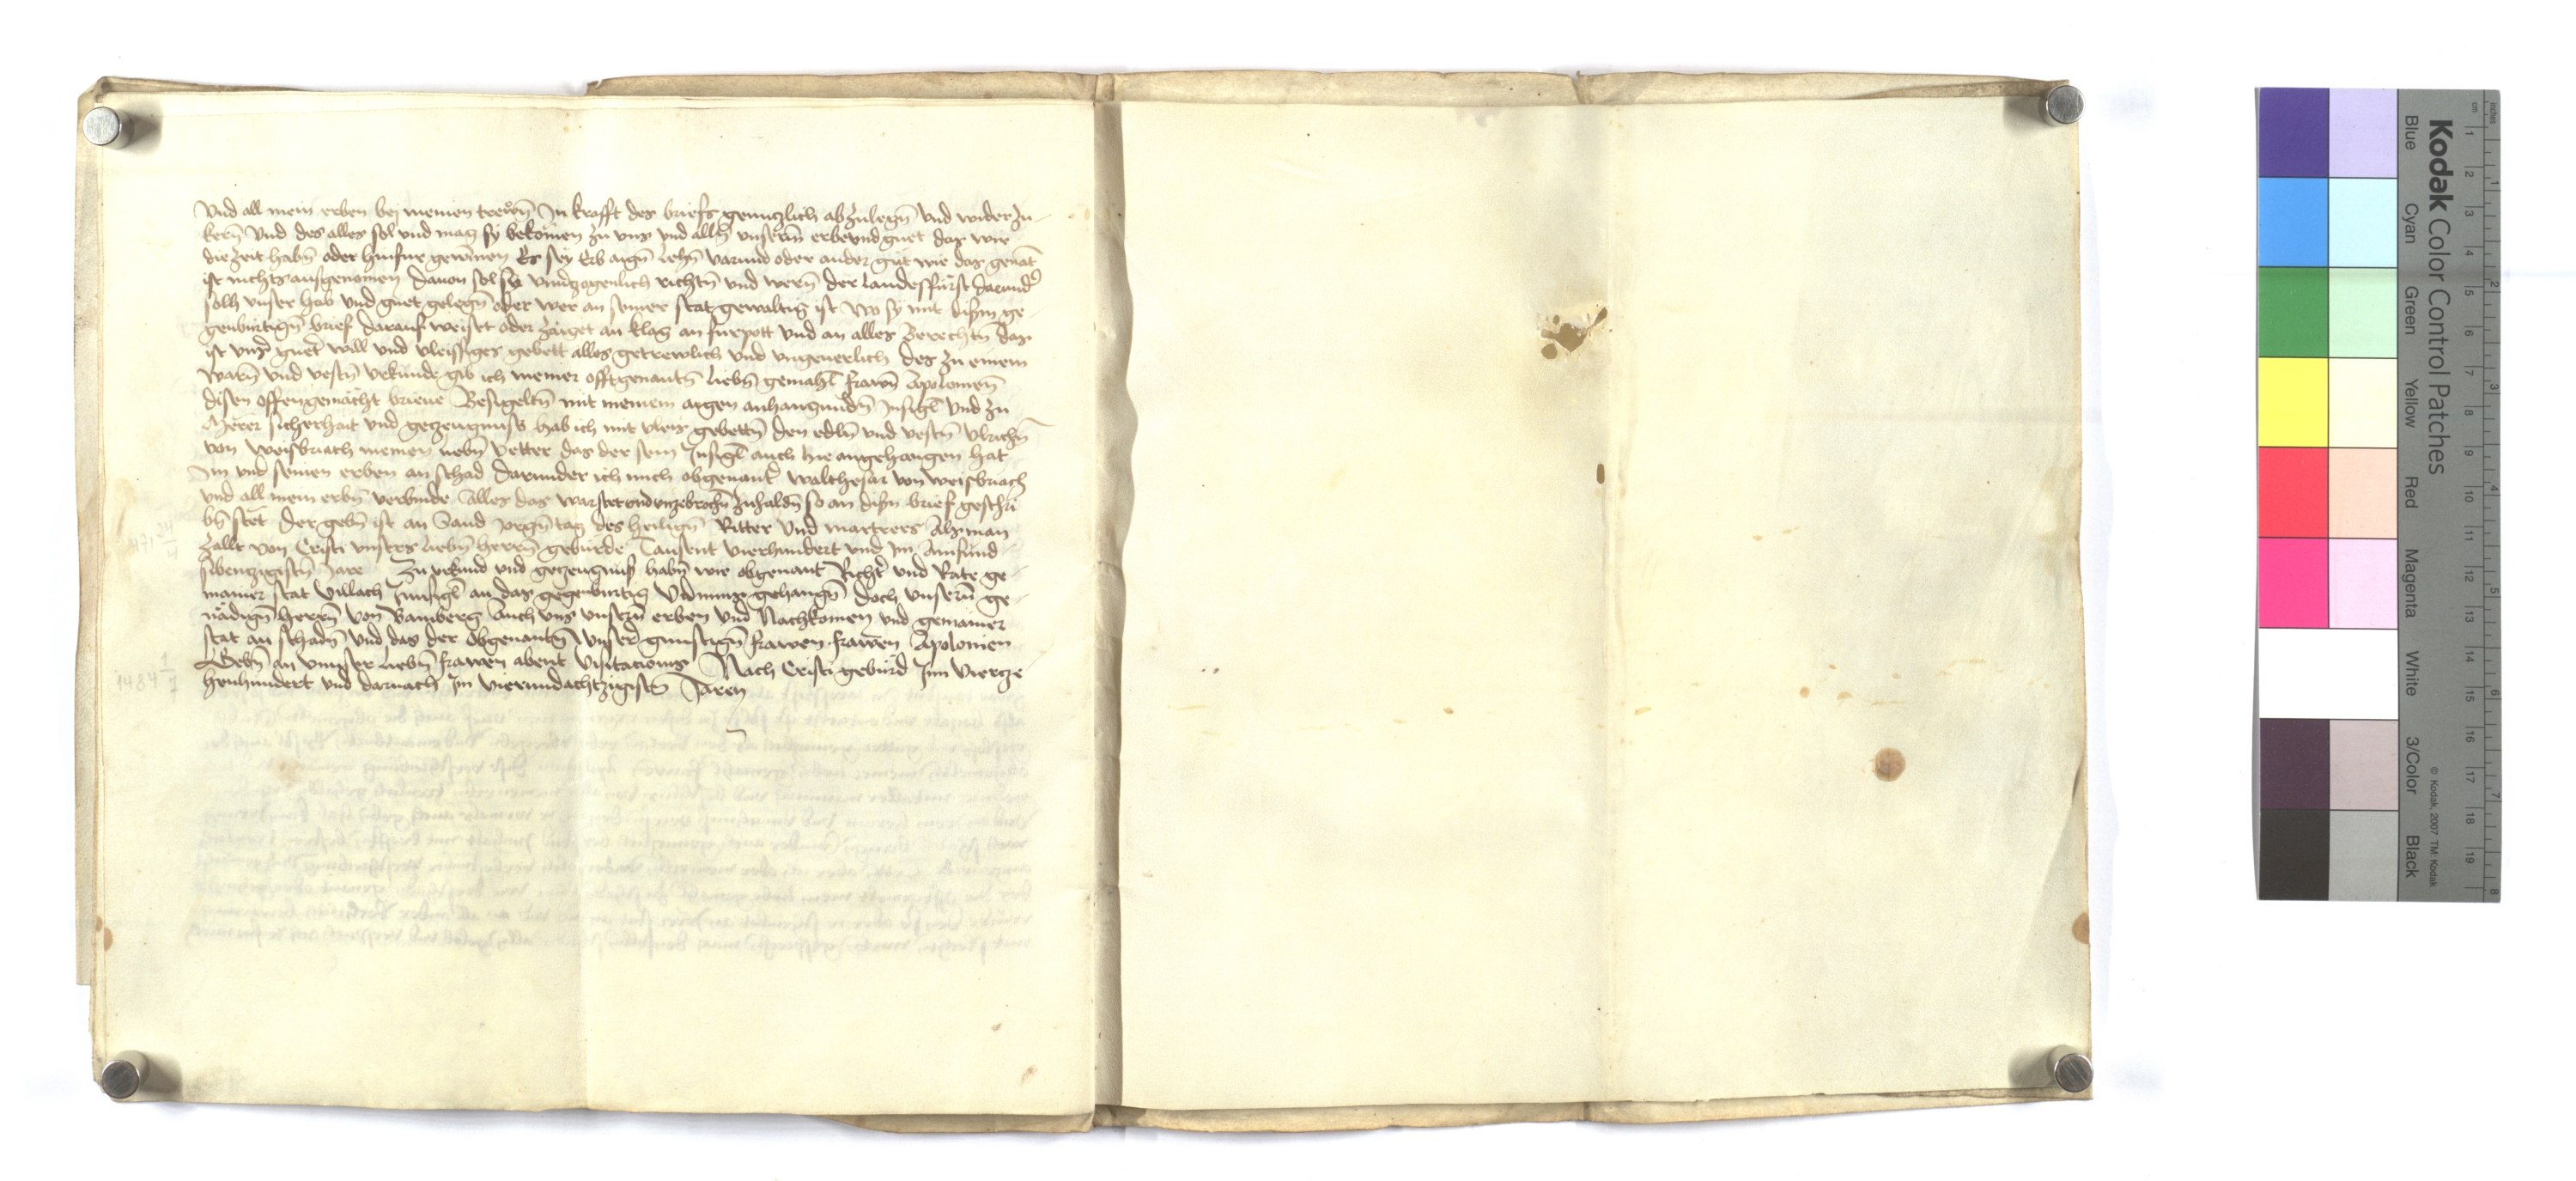 Vnd all mein erben bej meinen trewn̄ In krafft des briefs genntzlich abzulegn̄ vnd widerzu-
kern̄ Vnd des alles sol vnd mag sy bekomen zu vns vnd alln̄ vnserm̄ erb vnd guet das wir
die zeit habn̄ oder hinfur gewinnen Es sey Erb aign̄ lehn̄ varund oder ander gut wie das genāt
ist nichts ausgenomen Dauon sol sy vnuerzogenlich richtn̄ vnd wern̄ der landesffürst darund̄
solh vnser hab vnd guet gelegn̄ oder wer an seiner stat gewaltig ist wo sy mit disem ge-
genburtign̄ brief darauf weiset oder zaiget an klag an furpott vnd an alles Berechtn̄ das
ist vnnser guet will vnd vleissiges gebett alles getrewlich vnd vngeuerlich des zu einem
warn̄ vnd vestn̄ vrkunde gib ich meiner offtgenantn̄ liebn̄ gemahl̄ frawn̄ Apolonien̄
disen offengemācht brieue Besigeltn̄ mit meinem aigen anhangundn̄ Insigl̄ vnd zu
Merer sicherhait vnd getzeugnuss hab ich mit vleis gebettn̄ den edln̄ vnd vestn̄ vlrichn̄
von Weisbriach meinen liebn̄ vetter das der sein Insigl̄ auch hie angehangen hat
Im vnd seinen erben an schad darunder ich mich obgenant̄ walthesar von weisbriach
vnd all mein erbn̄ verbinde Alles das war stet vnd vnzebrochn̄ zuhaldn̄ so an disem brief geschri
bn̄ stet Der gebn̄ ist an Sand Jorgn̄ tag des heilign̄ Ritter vnd martrers Als man
zallt von Cristi vnsers liebn̄ herrn̄ geburde Tausent vierhundert vnd Im Ainsund
sibentzigistn̄ Jare Zu vrkund vnd getzeugnuss habn̄ wir obgenant Richt̄ vnd Rate ge-
mainer stat Villach Innsigl̄ an das gegenburtig Vidimus gehangn̄ doch vnserm̄ ge-
nädign̄ herrn̄ von Bamberg Auch vns vnsern̄ erben vnd Nachkomen vnd gemainer
stat an schadn̄ vnd das der obgenantn̄ vnser gunstign̄ frawen frawen Apolonien
Gebn̄ an vnnser liebn̄ frawen abent Visitacionis Nach Cristi geburd Im Viertze-
henhundert vnd darnach Im vierundachtzigistn̄ Jaren
1471 24/4
1484 1/7
Kodak Color Control Patches
© Kodak, 2007 TM: Kodak
Blue Cyan Green Yellow Red Magenta White 3/Color Black
inches 1 2 3 4 5 6 7 8
cm 1 2 3 4 5 6 7 8 9 10 11 12 13 14 15 16 17 18 19